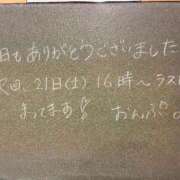 日もありがとうございました
次回、21日(土)16時〜ラスト
まってます!
おんぷ。